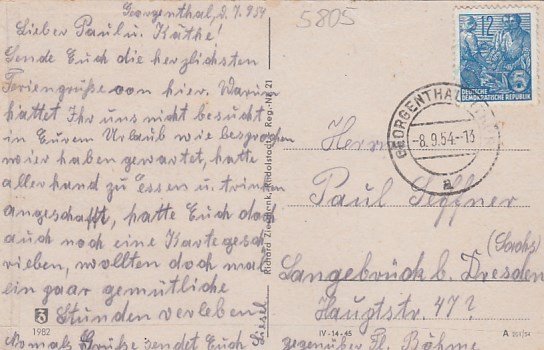 Georgenthal, d. 7. 9 54
Lieber Paul u. Käthe!
Sende Euch die herzlichsten
Feriengrüße von hier. Warum
hattet Ihr uns nicht besucht
in Eurem Urlaub wie besprochen
wier haben gewartet, hatte
allerhand zu Essen u. trinken
angeschafft, hatte Euch doch
auch noch eine Karte gesch
rieben, wollten doch mal
ein paar gemütliche
Stunden verleben
Nomals Grüße sendet Euch
Liesel
3
1982
Richard Zieschank, Rudolstadt Reg.-Nr. 21
5805
12
5
DEUTSCHE
DEMOKRATISCHE REPUBLIK
GEORGENTHAL
-8.9.54.-13
a
Herrn
Paul
(Sachs)
Langebrück b. Dresden
Hauptstr. 47?
gegenüber Fl. Böhme
IV-14-45
A